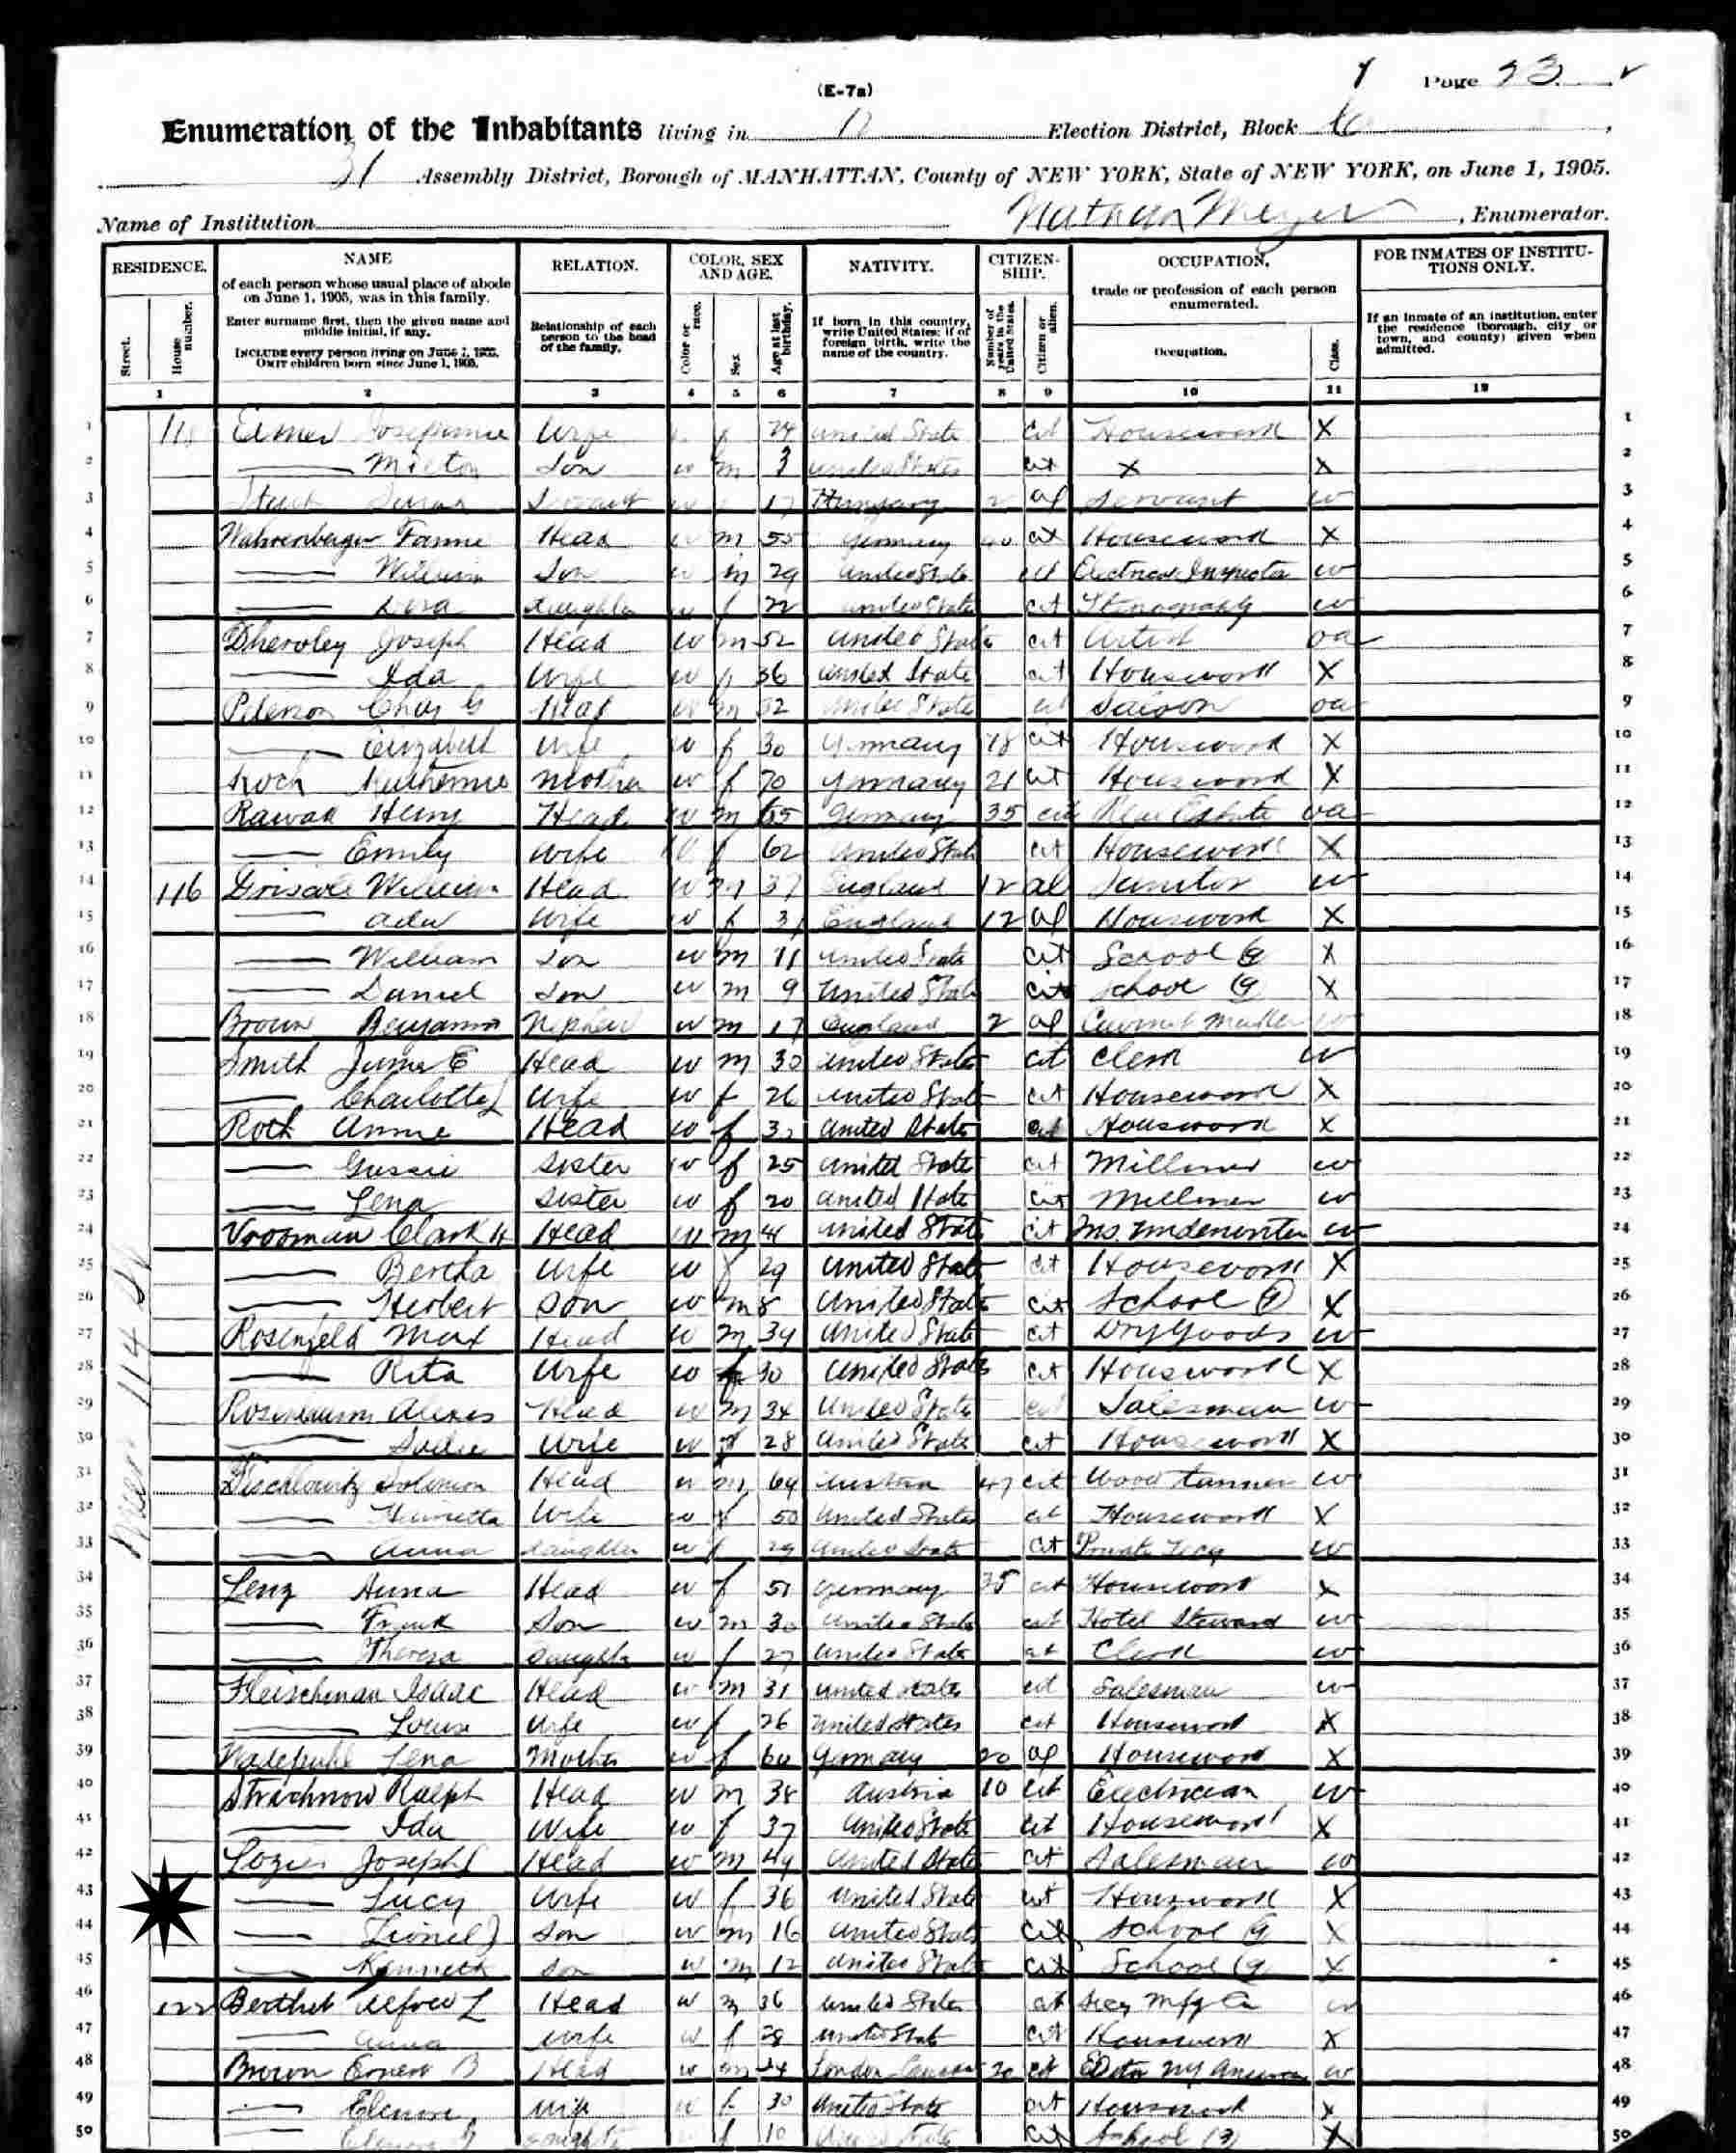 (E-7a)
Page 23
Enumeration of the Inhabitants living in Election District, Block
31 Assembly District, Borough of MANHATTAN, County of NEW YORK, State of NEW YORK, on June 1, 1905.
Name of Institution Nathan Meyer, Enumerator.
RESIDENCE. NAME RELATION. COLOR, SEX AND AGE. NATIVITY. CITIZEN-SHIP. OCCUPATION, FOR INMATES OF INSTITU-TIONS ONLY.
Street. House number.
of each person whose usual place of abode on June 1, 1905, was in this family.
Enter surname first, then the given name and middle initial, if any.
INCLUDE every person living on June 1, 1905. OMIT children born since June 1, 1905.
Relationship of each person to the head of the family.
Color or race. Sex Age at last birthday.
If born in this country, write United States; if of foreign birth, write the name of the country.
Number of years in the United States. Citizen or alien.
trade or profession of each person enumerated.
Occupation. Class.
If an inmate of an institution, enter the residence (borough, city or town, and county) given when admitted.
1 2 3 4 5 6 7 8 9 10 11 12
1 Josephine Wife 24 United State cit Housework X 1
2 — Milton Son w m 3 United States cit X X 2
3 Servant w 17 Hungary 2 al Servant w 3
4 Fannie Head w m 55 Germany 40 cit Housework X 4
5 — William Son w m 29 United State cit Electrical Inspector w 5
6 — Daughter w f 22 United State cit w 6
7 Joseph Head w m 52 United States cit Artist oa 7
8 — Ida Wife w f 36 United State cit Housework X 8
9 Peterson Chas G Head w m 32 United State cit Saloon oa 9
10 — Elizabeth Wife w f 30 Germany 18 cit Housework X 10
11 Koch Katherine Mother w f 70 Germany 21 cit Housework X 11
12 Henry Head w m 65 Germany 35 cit Real Estate oa 12
13 — Emily Wife f 62 United State cit Housework X 13
14 116 William Head w m 37 England 12 al Janitor w 14
15 — Ada Wife w f 31 England 12 al Housework X 15
16 — William Son w m 11 United State cit School X 16
17 — Daniel Son w m 9 United State cit School (9) X 17
18 Brown Benjamin Nephew w m 17 England 2 al 18
19 Smith James E Head w m 30 United States cit Clerk w 19
20 — Charlotte L Wife w f 26 United State cit Housework X 20
21 Roth Annie Head w f United States cit Housework X 21
22 — Gussie Sister w f 25 United State cit Milliner w 22
23 — Lena Sister w f 20 United State cit Milliner w 23
24 Vrooman Clark H Head w m 41 United State cit Ins. Underwriter w 24
25 — Bertha Wife w f 29 United State cit Housework X 25
26 — Herbert Son w m 8 United State cit School X 26
27 Rosenfeld Max Head w m 34 United State cit Dry Goods w 27
28 — Rita Wife w f 30 United States cit Housework X 28
29 Head w m 34 United State cit Salesman w 29
30 — Sadie Wife w f 28 United State cit Housework X 30
31 Solomon Head w m 64 Austria 47 cit w 31
32 — Henrietta Wife w f 50 United States cit Housework X 32
33 — Anna Daughter w f 29 United State cit Private w 33
34 Lenz Anna Head w f 51 Germany 35 cit Housework X 34
35 — Frank Son w m 30 United State cit Hotel Steward w 35
36 — Theresa Daughter w f 27 United State cit Clerk w 36
37 Fleischman Isaac Head w m 31 United States cit Salesman w 37
38 — Louise Wife w f 26 United States cit Housework X 38
39 Lena Mother w f 60 Germany 20 al Housework X 39
40 Ralph Head w m 38 Austria 10 cit Electrician w 40
41 — Ida Wife w f 37 United State cit Housework X 41
42 Lozier Joseph Head w m 44 United States cit Salesman w 42
43 — Lucy Wife w f 36 United State cit Housework X 43
44 — Lionel J Son w m 16 United State cit School X 44
45 — Kenneth Son w m 12 United State cit School X 45
46 122 Alfred L Head w m 36 United States cit Secy Mfg Co w 46
47 — Anna Wife w f 28 United State cit Housework X 47
48 Brown Ernest B Head w m London 20 cit w 48
49 — Wife w f 30 United State cit Housework X 49
50 Daughter f 10 cit School X 50
West 114 St